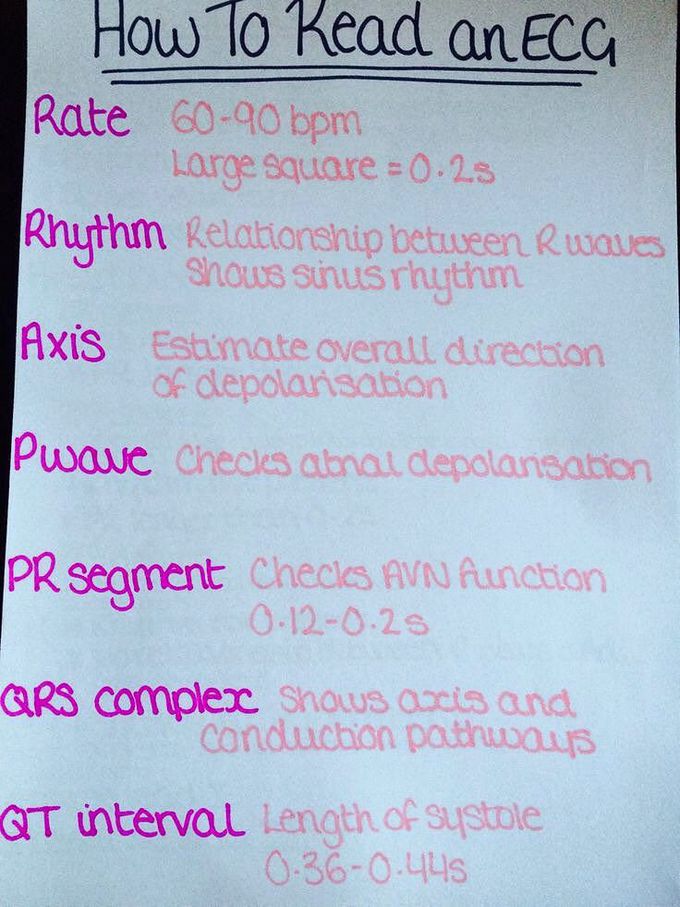 How To Read an ECG
Rate 60-90 bpm
Large square = 0.2s
Rhythm Relationship between R waves
shows sinus rhythm
Axis Estimate overall direction
of depolarisation
P wave Checks atrial depolarisation
PR segment Checks AVN function
0.12-0.2s
QRS complex Shows axis and
conduction pathways
QT interval Length of systole
0.36-0.44s